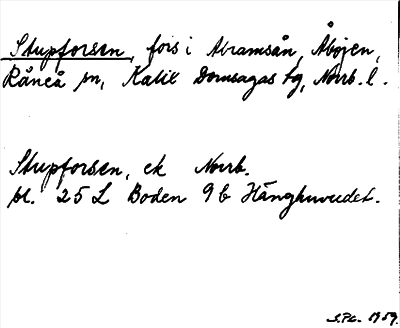 Stupforsen, fors i Abramsån, Åböjen,
Råneå sn, Kalix Domsagas tg, Norrb. l.
Stupforsen, ek Norrb.
bl. 25 L Boden 9 b Hänghuvudet.
1959.